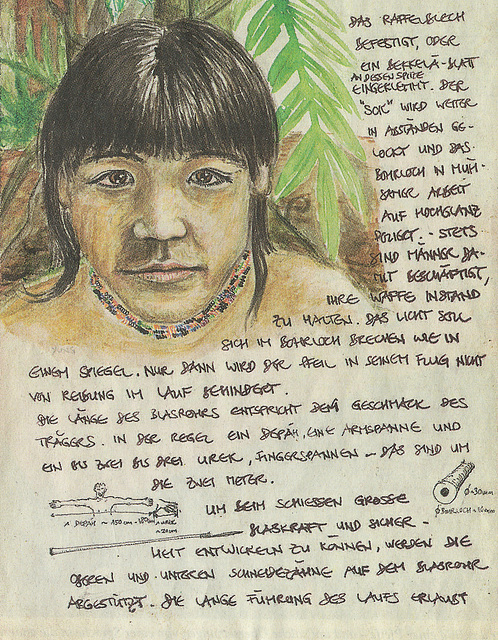 DAS RAFFELBLECH
BEFESTIGT, ODER
EIN BEKKELÄ-BLATT
AN DESSEN SPITZE
EINGEKLEMMT. DER
"SOK" WIRD WEITER
IN ABSTÄNDEN GE-
LOCKT UND DAS
BOHRLOCH IN MÜH-
SAMER ARBEIT
AUF HOCHGLANZ
POLIERT. - STETS
SIND MÄNNER DA-
MIT BESCHÄFTIGT,
IHRE WAFFE INSTAND
ZU HALTEN. DAS LICHT SOLL
SICH IM BOHRLOCH BRECHEN WIE IN
EINEM SPIEGEL. NUR DANN WIRD DER PFEIL IN SEINEM FLUG NICHT
VON REIBUNG IM LAUF BEHINDERT.
DIE LÄNGE DES BLASROHRS ENTSPRICHT DEM GESCHMACK DES
TRÄGERS. IN DER REGEL EIN DEPÄH, EINE ARMSPANNE UND
EIN BIS ZWEI BIS DREI UREK, FINGERSPANNEN - DAS SIND UM
DIE ZWEI METER.
Ø~30mm
Ø BOHRLOCH ~10mm
1 DEPÄH ~ 150 cm - 180cm
1 UREK
~20cm
UM BEIM SCHIESSEN GROSSE
BLASKRAFT UND SICHER-
HEIT ENTWICKELN ZU KÖNNEN, WERDEN DIE
OBEREN UND UNTEREN SCHNEIDEZÄHNE AUF DEM BLASROHR
ABGESTÜTZT. DIE LANGE FÜHRUNG DES LAUFS ERLAUBT